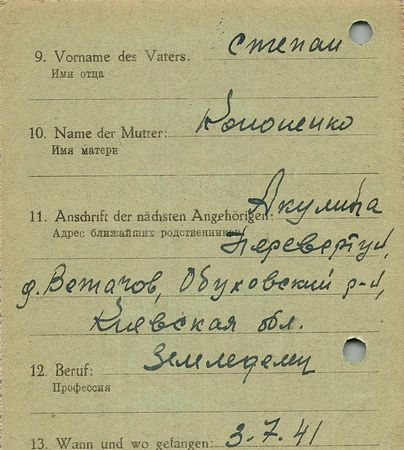 9. Vorname des Vaters: Степан
Имя отца
10. Name der Mutter: Кононенко
Имя матери
11. Anschrift der nächsten Angehörigen: Акулина
Адрес ближайших родственников
Перевертун,
д. Витачов, Обуховский р-н,
Киевская обл.
12. Beruf: Земледелец
Профессия
13. Wann und wo gefangen: 3.7.41